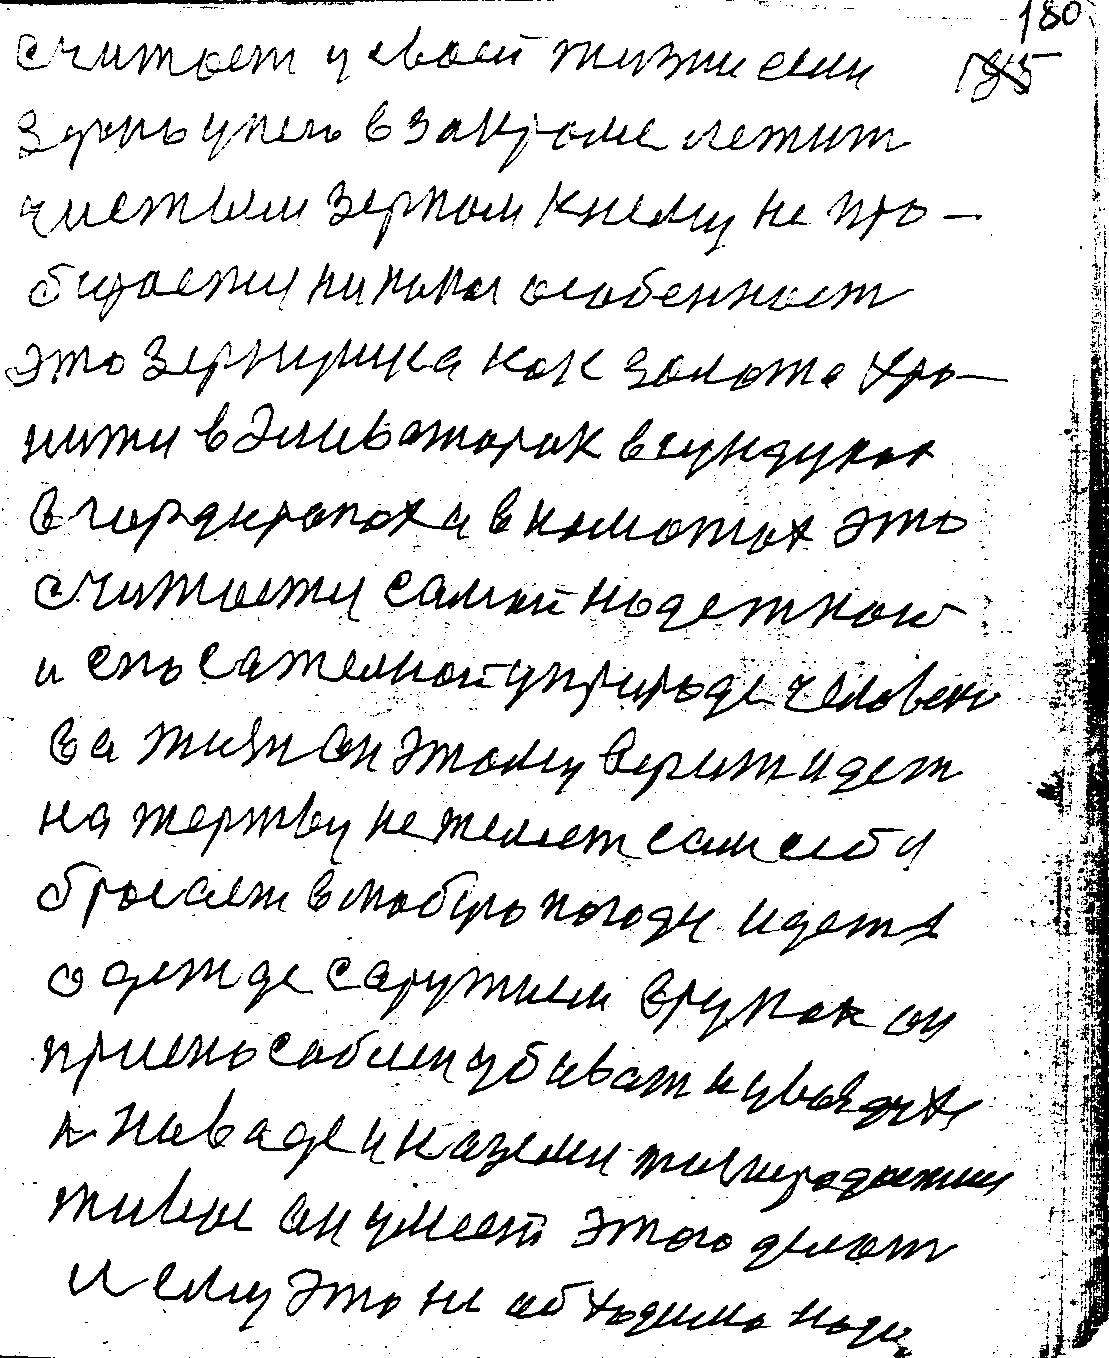 180
считает у своей жизни если
185
зерно у него в закроме лежит
чистым зерном к нему не про-
будетжи никакой особенност
это зернушка как золото хра-
нитжи в Эливаторах в сундуках
в гардиропах и в коматах это
считаетжи самой надежной
и спасателной у природе человека
ва жизн он этому верит идет
на жертву не желеет сам себя
бросает в любую погоду идет в
одежде с аружием в руках он
приспособлен убиват и у воздухе
и на ваде и на земли
живое он умеет этого делат
и ему это не абходимо нада